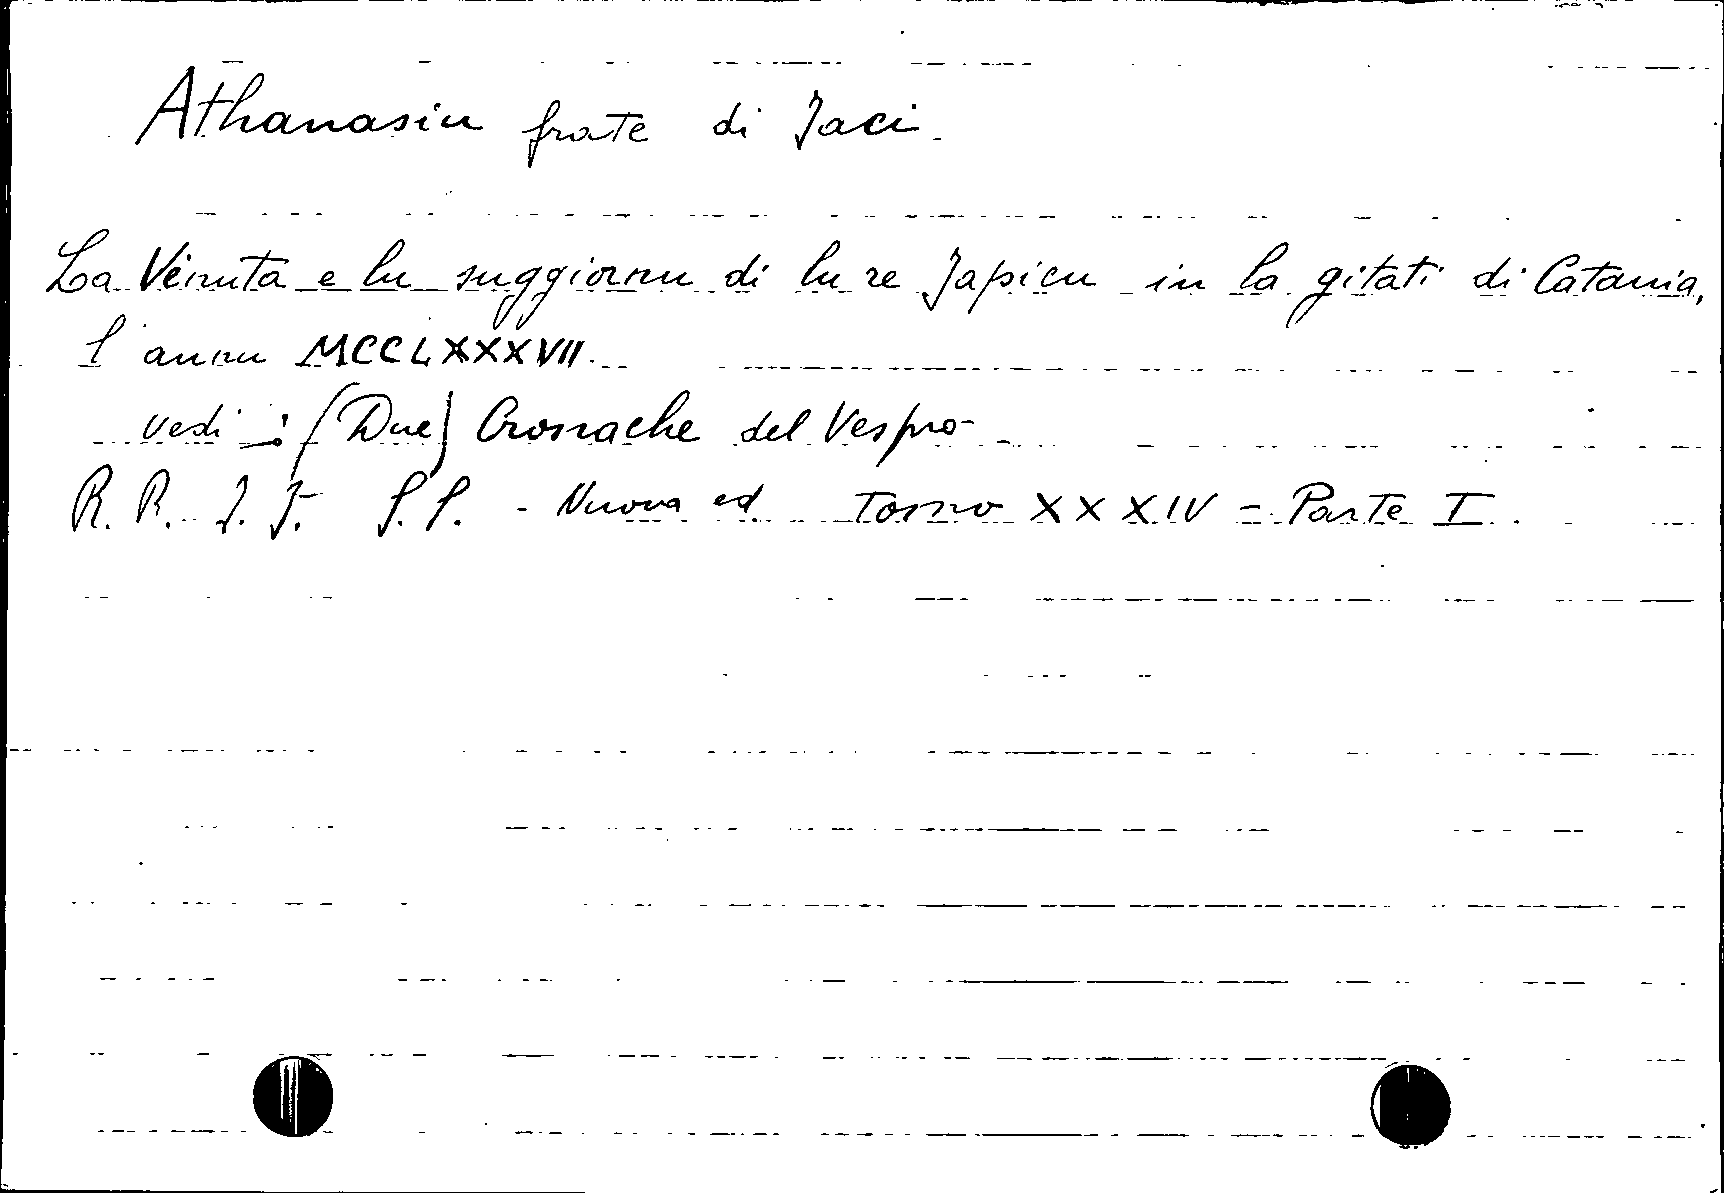 Athanasiu frate di Jaci.
La Venuta e lu suggiornu di lu re Japicu in la gitati di Catania,
l'annu MCCLXXXVII.
vedi : (Due) Cronache del Vespro
R. R. I. I. S.S. - Nuova ed. Tomo XXXIV - Parte I.